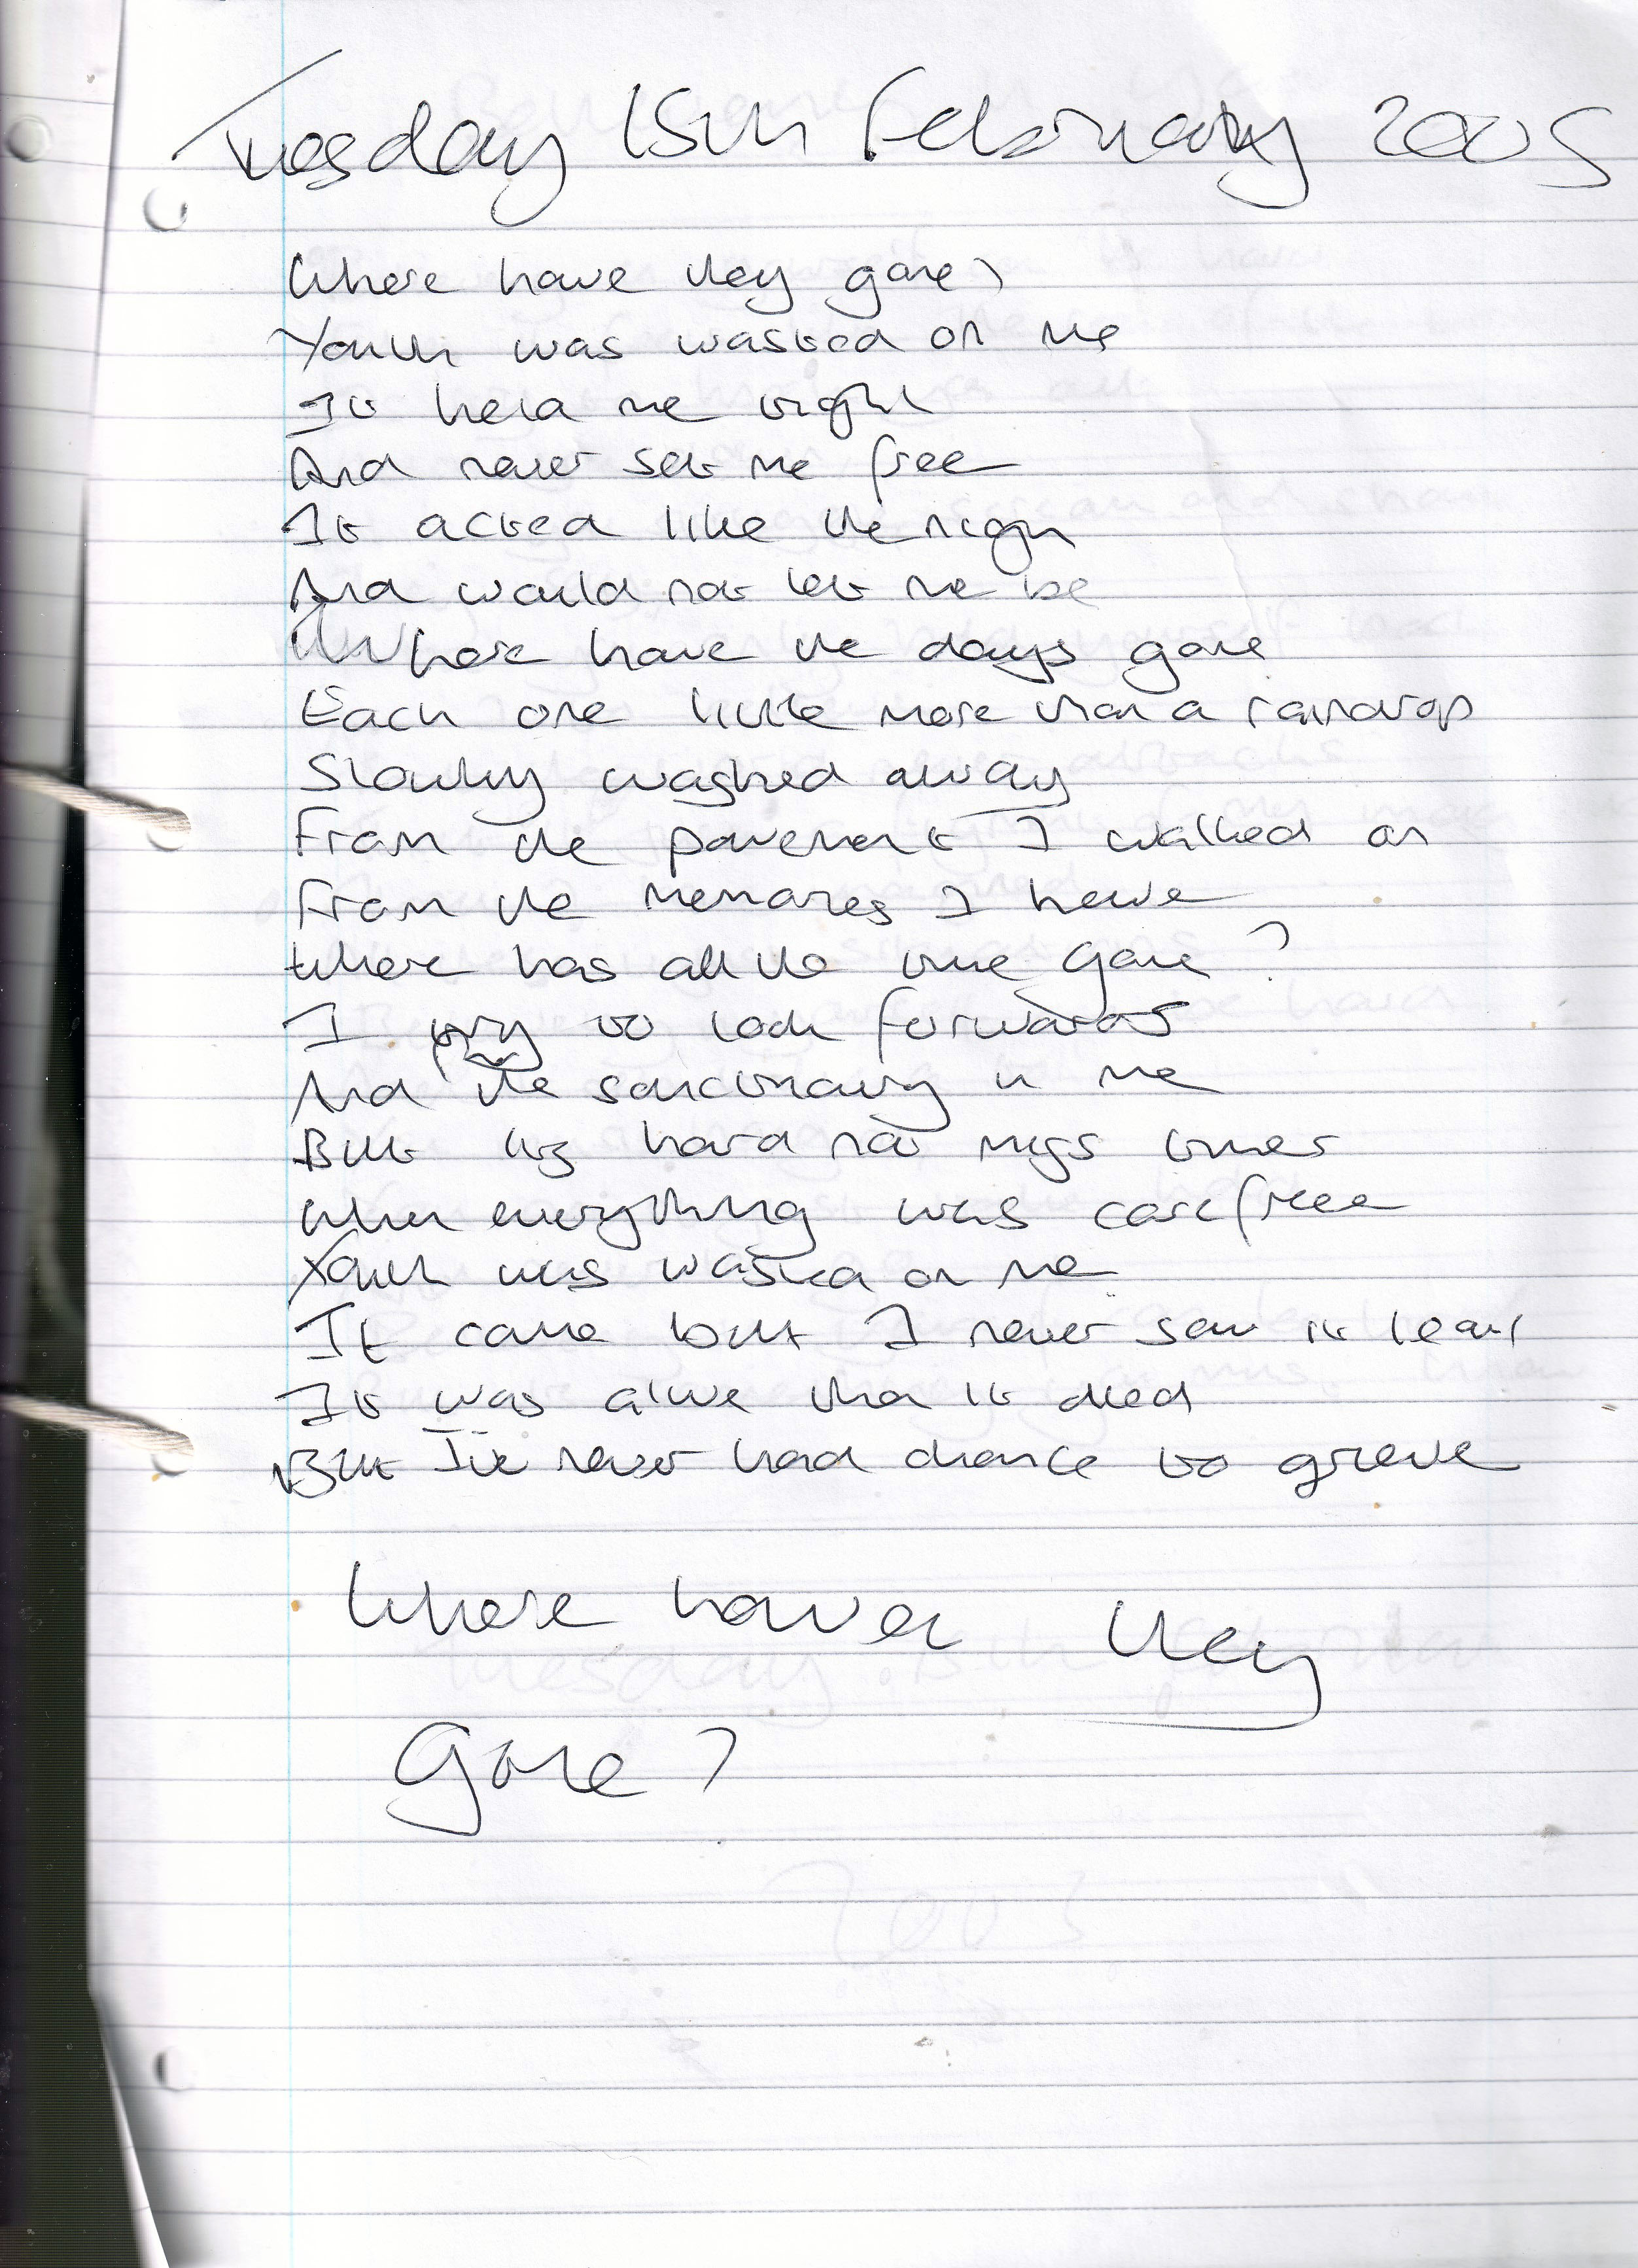 Tuesday 15th February 2005
Where have they gone?
Youth was wasted on me
It held me tight
And never set me free
It acted like the night
And would not let me be
Where have the days gone
Each one little more than a raindrop
Slowly washed away
From the pavement I walked on
From the memories I have
Where has all the time gone?
I try to look forwards
And the sanctuary in me
But its hard not miss times
When everything was carefree
Youth was wasted on me
It came but I never saw it leave
It was alive then it died
But I've never had chance to grieve
Where have they
Gone?